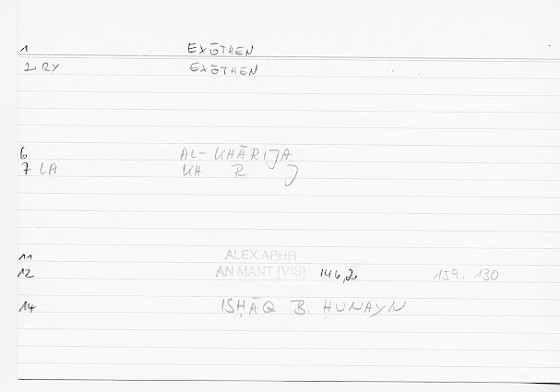 1 EXŌTHEN
2 RY EXŌTHEN
6 AL-KHĀRIJA
7 LA KH R J
11 ALEX APHR
12 AN MANT [VIS] 146,2 159. 130
14 ISḤĀQ B. ḤUNAYN